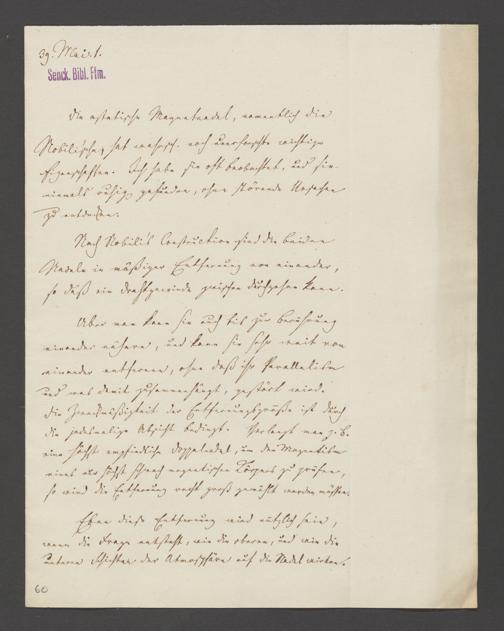 39. Mai. 1.
Senck. Bibl. Ffm.
Die astatische Magnetnadel, namentlich die
Nobilische, hat wahrsch. noch unerforschte wichtige
Eigenschaften. Ich habe sie oft beobachtet, und sie
niemals ruhig gefunden, ohne störende Ursachen
zu entdecken.
Nach Nobili's Construction sind die beiden
Nadeln in mäßiger Entfernung von einander,
so daß ein Drahtgewinde zwischen durchgehen kann.
Aber man kann sie auch bis zur Berührung
einander nähern, und kann sie sehr weit von
einander entfernen, ohne daß ihr Parallelism
und was damit zusammenhängt, gestört wird.
Die Zweckmäßigkeit der Entfernungsgröße ist durch
die jedesmalige Absicht bedingt. Verlangt man z.B.
eine höchst empfindliche Doppelnadel, um den Magnetism
eines nur höchst schwach magnetischen Körpers zu prüfen,
so wird die Entfernung recht groß gewählt werden müssen.
Eben diese Entfernung wird nützlich sein,
wenn die Frage entsteht, wie die oberen, und wie die
unteren Schichten der Atmosphäre auf die Nadel wirken.
60